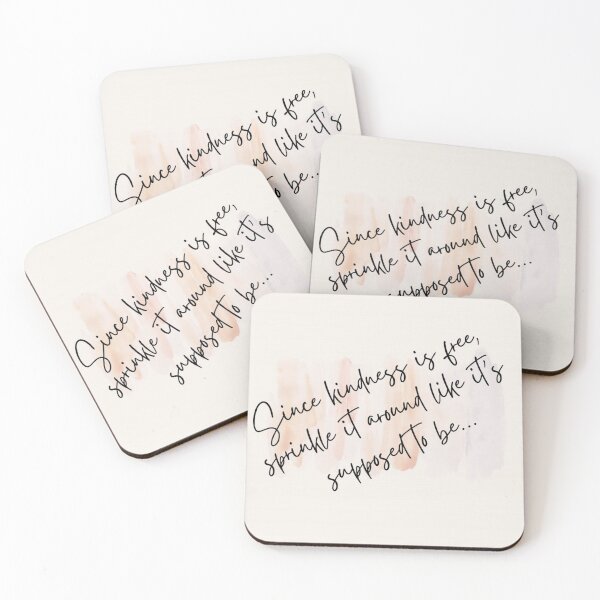 Since kindness is free,
like it's
be...
Since kindness is free,
sprinkle it around like it's
supposed to be...
Since kindness is free,
sprinkle it around like it's
supposed to be...
Since kindness is free,
sprinkle it around like it's
supposed to be...